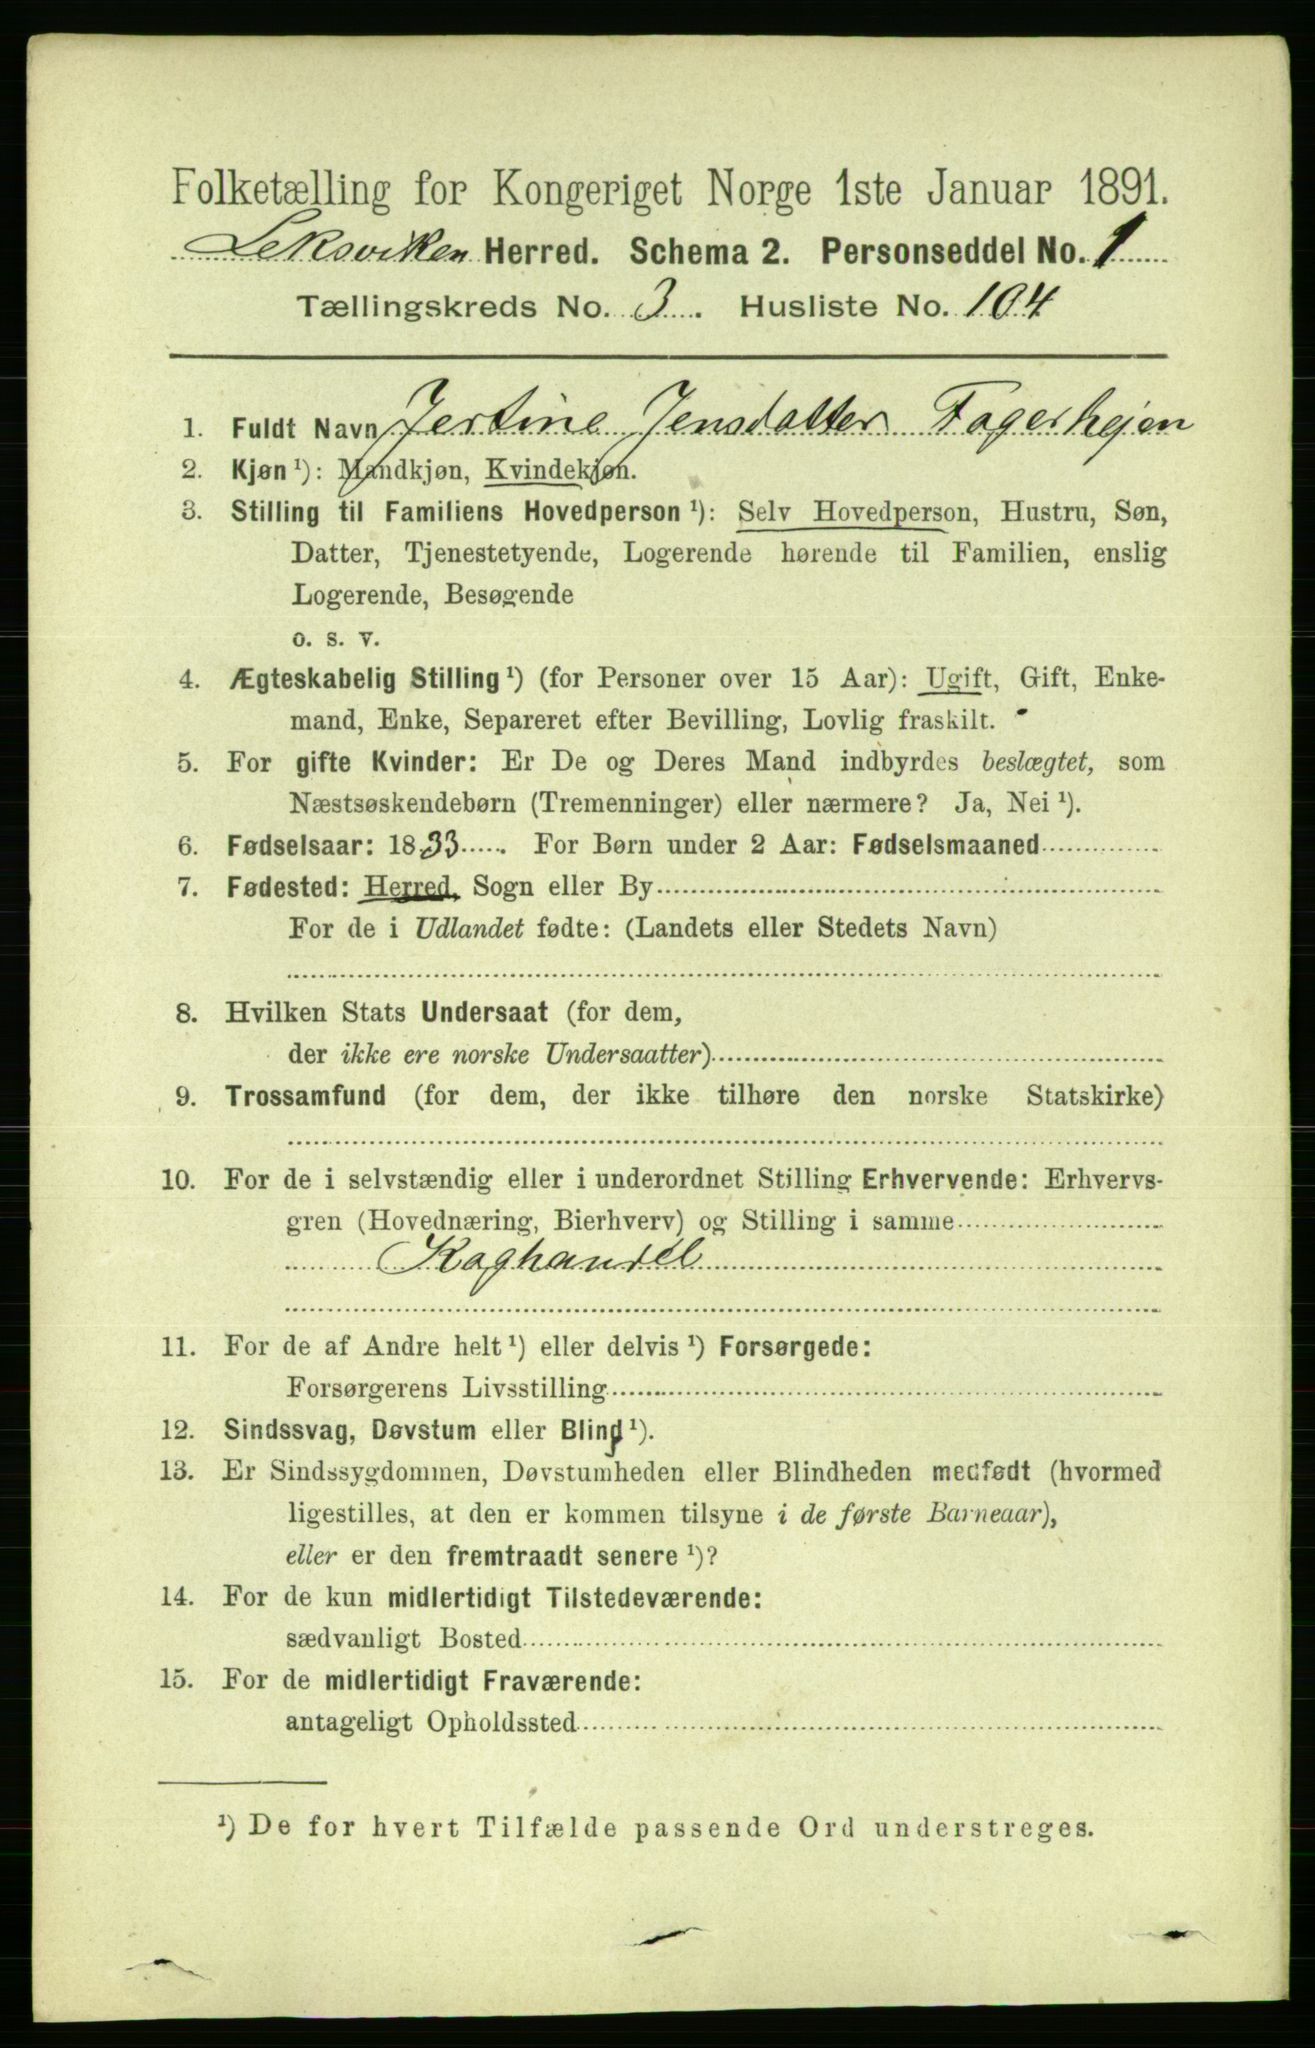 Folketælling for Kongeriget Norge 1ste Januar 1891.
Leksviken Herred. Schema 2. Personseddel No. 1
Tællingskreds No. 3. Husliste No. 104
1. Fuldt Navn Jertine Jensdatter Fagerhejen
2. Kjøn ¹): Mandkjøn, Kvindekjøn.
3. Stilling til Familiens Hovedperson ¹): Selv Hovedperson, Hustru, Søn,
Datter, Tjenestetyende, Logerende hørende til Familien, enslig
Logerende, Besøgende
o. s. v.
4. Ægteskabelig Stilling ¹) (for Personer over 15 Aar): Ugift, Gift, Enke-
mand, Enke, Separeret efter Bevilling, Lovlig fraskilt.
5. For gifte Kvinder: Er De og Deres Mand indbyrdes beslægtet, som
Næstsøskendebørn (Tremenninger) eller nærmere? Ja, Nei ¹).
6. Fødselsaar: 1833. For Børn under 2 Aar: Fødselsmaaned
7. Fødested: Herred, Sogn eller By
For de i Udlandet fødte: (Landets eller Stedets Navn)
8. Hvilken Stats Undersaat (for dem,
der ikke ere norske Undersaatter)
9. Trossamfund (for dem, der ikke tilhøre den norske Statskirke)
10. For de i selvstændig eller i underordnet Stilling Erhvervende: Erhvervs-
gren (Hovednæring, Bierhverv) og Stilling i samme
Kaghandel
11. For de af Andre helt ¹) eller delvis ¹) Forsørgede:
Forsørgerens Livsstilling
12. Sindssvag, Døvstum eller Blind ¹).
13. Er Sindssygdommen, Døvstumheden eller Blindheden medfødt (hvormed
ligestilles, at den er kommen tilsyne i de første Barneaar),
eller er den fremtraadt senere ¹)?
14. For de kun midlertidigt Tilstedeværende:
sædvanligt Bosted
15. For de midlertidigt Fraværende:
antageligt Opholdssted
¹) De for hvert Tilfælde passende Ord understreges.